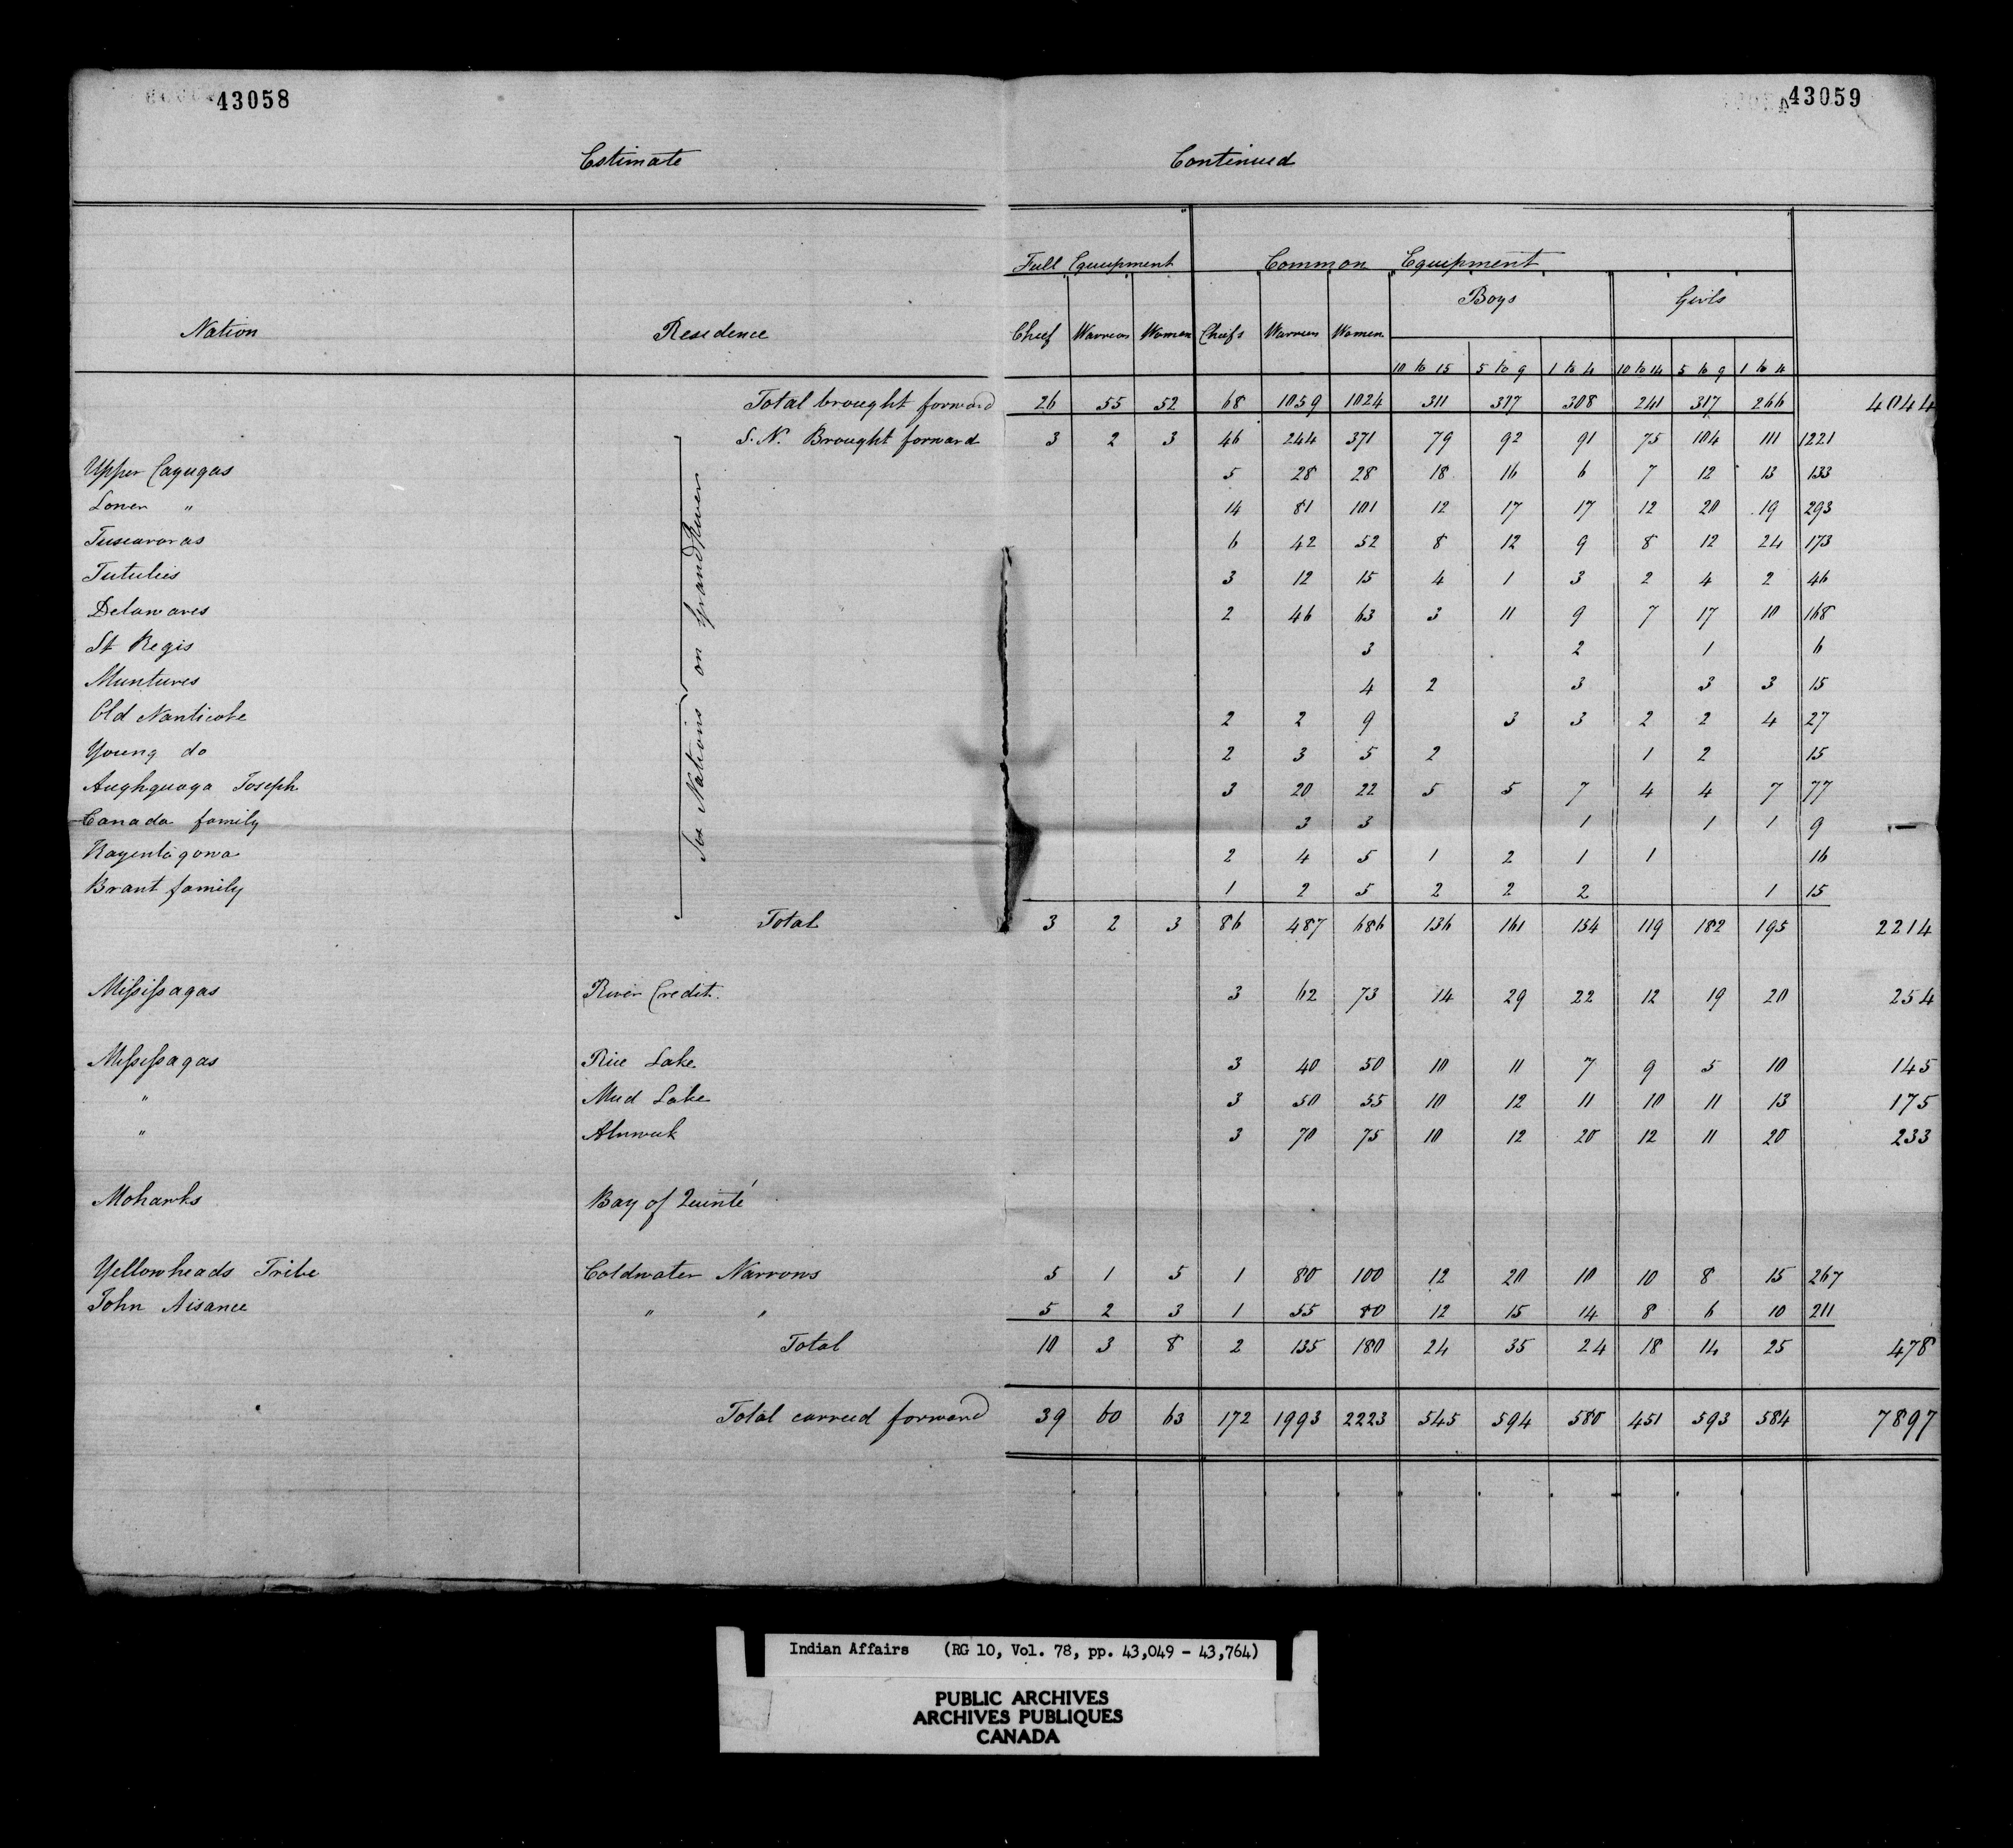 43058
43059
Estimate Continued
Full Equipment Common Equipment
Boys Girls
Nation Residence Chief Warriors Women Chiefs Warriors Women
10 to 15 5 to 9 1 to 4 10 to 14 5 to 9 1 to 4
Total brought forward 26 55 52 68 1059 1024 311 317 308 241 317 266 4044
S. N. Brought forward 3 2 3 46 244 371 79 92 91 75 104 111 1221
Upper Cayugas 5 28 28 18 16 6 7 12 13 133
Lower " 14 81 101 12 17 17 12 20 19 293
Tuscaroras 6 42 52 8 12 9 8 12 24 173
Tutulies 3 12 15 4 1 3 2 4 2 46
Delawares 2 46 63 3 11 9 7 17 10 168
St Regis 3 2 1 6
Muntures 4 2 3 3 3 15
Old Nanticoke 2 2 9 3 3 2 2 4 27
Young do 2 3 5 2 1 2 15
Aughquaga Joseph 3 20 22 5 5 7 4 4 7 77
Canada family 3 3 1 1 1 9
Kayentagowa 2 4 5 1 2 1 1 16
Brant family 1 2 5 2 2 2 1 15
Six Nations on Grand River
Total 3 2 3 86 487 686 136 161 154 119 182 195 2214
Missisagas River Credit. 3 62 73 14 29 22 12 19 20 254
Missisagas Rice Lake 3 40 50 10 11 7 9 5 10 145
" Mud Lake 3 50 55 10 12 11 10 11 13 175
" Alnwick 3 70 75 10 12 20 12 11 20 233
Mohawks Bay of Quinté
Yellowheads Tribe Coldwater Narrows 5 1 5 1 80 100 12 20 10 10 8 15 267
John Aisance " " 5 2 3 1 55 80 12 15 14 8 6 10 211
Total 10 3 8 2 135 180 24 35 24 18 14 25 478
Total carried forward 39 60 63 172 1993 2223 545 594 580 451 593 584 7897
Indian Affairs (RG 10, Vol. 78, pp. 43,049 - 43,764)
PUBLIC ARCHIVES
ARCHIVES PUBLIQUES
CANADA